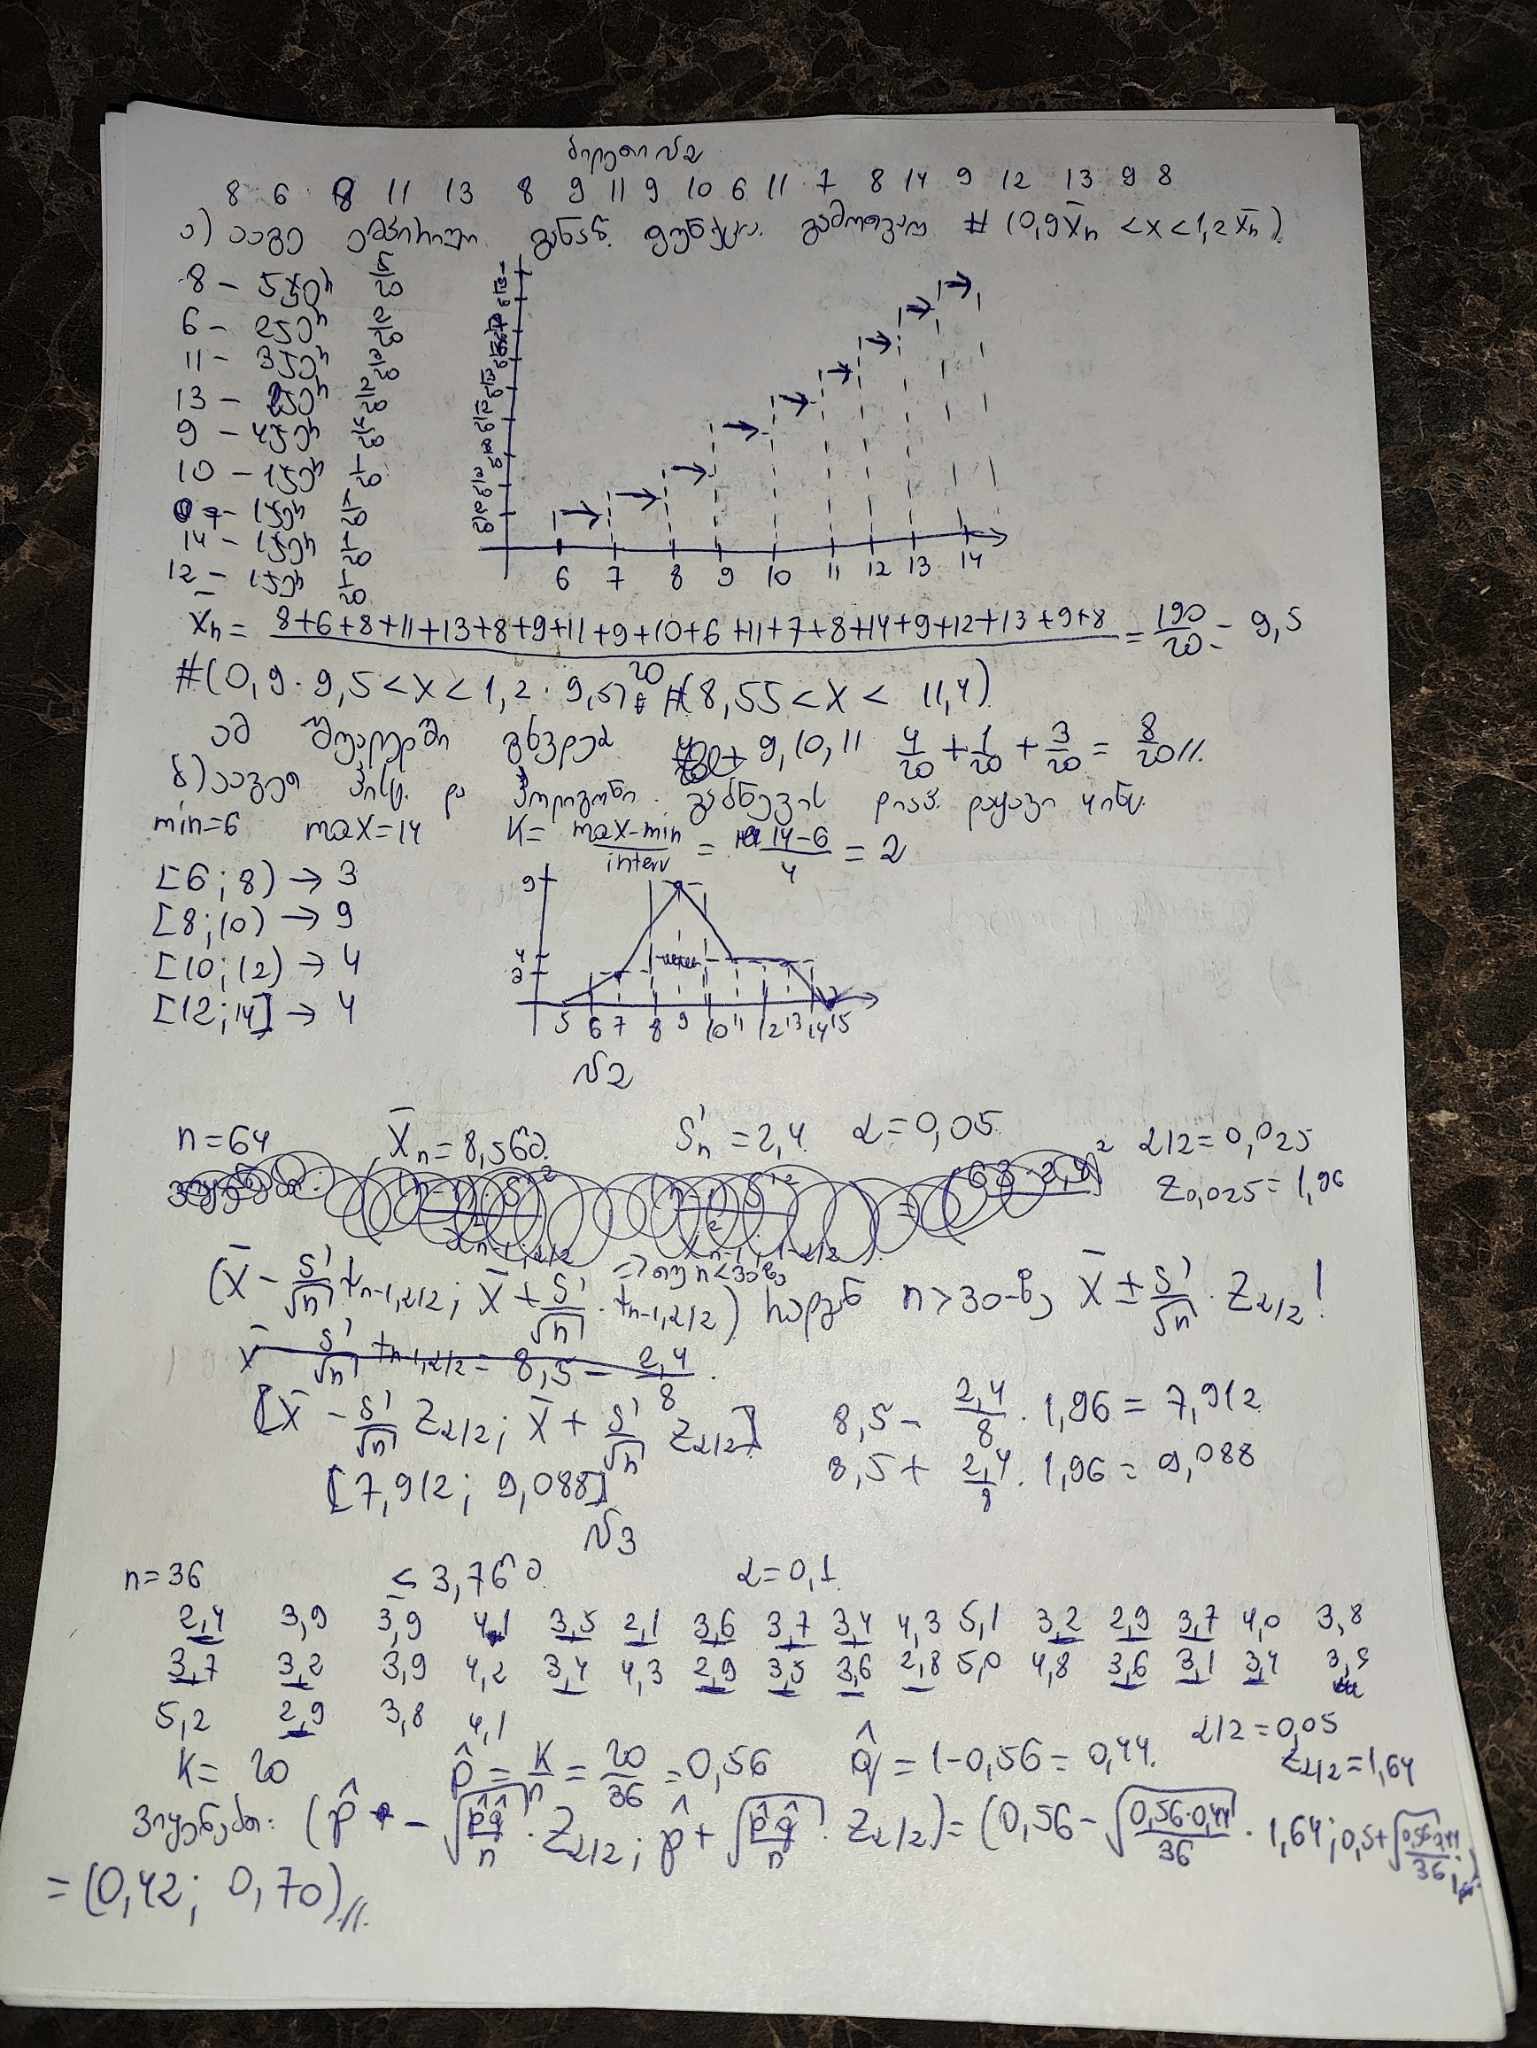 ბილეთი №2
8 6 8 11 13 8 9 11 9 10 6 11 7 8 14 9 12 13 9 8
ა) ააგე ემპირიული განაწ. ფუნქცია. გამოთვალე # (0,9x̄n < x < 1,2x̄n)
8 – 5ჯერ 5/20
6 – 2ჯერ 2/20
11 – 3ჯერ 3/20
13 – 2ჯერ 2/20
9 – 4ჯერ 4/20
10 – 1ჯერ 1/20
7 – 1ჯერ 1/20
14 – 1ჯერ 1/20
12 – 1ჯერ 1/20
6 7 8 9 10 11 12 13 14
x̄n = (8+6+8+11+13+8+9+11+9+10+6+11+7+8+14+9+12+13+9+8)/20 = 190/20 = 9,5
#(0,9 · 9,5 < x < 1,2 · 9,5) = #(8,55 < x < 11,4)
ამ შუალედში გხვდება 9, 10, 11 4/20 + 1/20 + 3/20 = 8/20 //.
ბ) ააგეთ ჰისტ. და პოლიგონი. გაბნევის დიაპ. დაყავი 4 ინტ.
min=6 max=14 K = (max-min)/interv = (14-6)/4 = 2
[6; 8) → 3
[8; 10) → 9
[10; 12) → 4
[12; 14] → 4
9
4
3
5 6 7 8 9 10 11 12 13 14 15
№2
n=64 x̄n = 8,5 S'n = 2,4 α = 0,05 α/2 = 0,025
z0,025 = 1,96
(x̄ - S'/√n tn-1,α/2; x̄ + S'/√n · tn-1,α/2) => თუ n< რადგან n>30-ზე x̄ ± S'/√n · Zα/2!
x̄ S'/√n tn-1,α/2 = 8,5 - 2,4/8 ·
[x̄ - S'/√n Zα/2; x̄ + S'/√n Zα/2] 8,5 - 2,4/8 · 1,96 = 7,912
[7,912; 9,088] 8,5 + 2,4/8 · 1,96 = 9,088
№3
n=36 ≤ 3,7 α = 0,1
2,4 3,9 3,9 4,1 3,5 2,1 3,6 3,7 3,4 4,3 5,1 3,2 2,9 3,7 4,0 3,8
3,7 3,2 3,9 4,2 3,4 4,3 2,9 3,5 3,6 2,8 5,0 4,8 3,6 3,1 3,4
5,2 2,9 3,8 4,1
α/2 = 0,05
K = 20 p̂ = K/n = 20/36 = 0,56 q̂ = 1-0,56 = 0,44. Zα/2 = 1,64
ვიყენებთ: (p̂ - √(p̂q̂/n) · Zα/2; p̂ + √(p̂q̂/n) · Zα/2) = (0,56 - √(0,56·0,44/36) · 1,64; 0,5 + √(0,56·0,44/36)
= (0,42; 0,70) //.